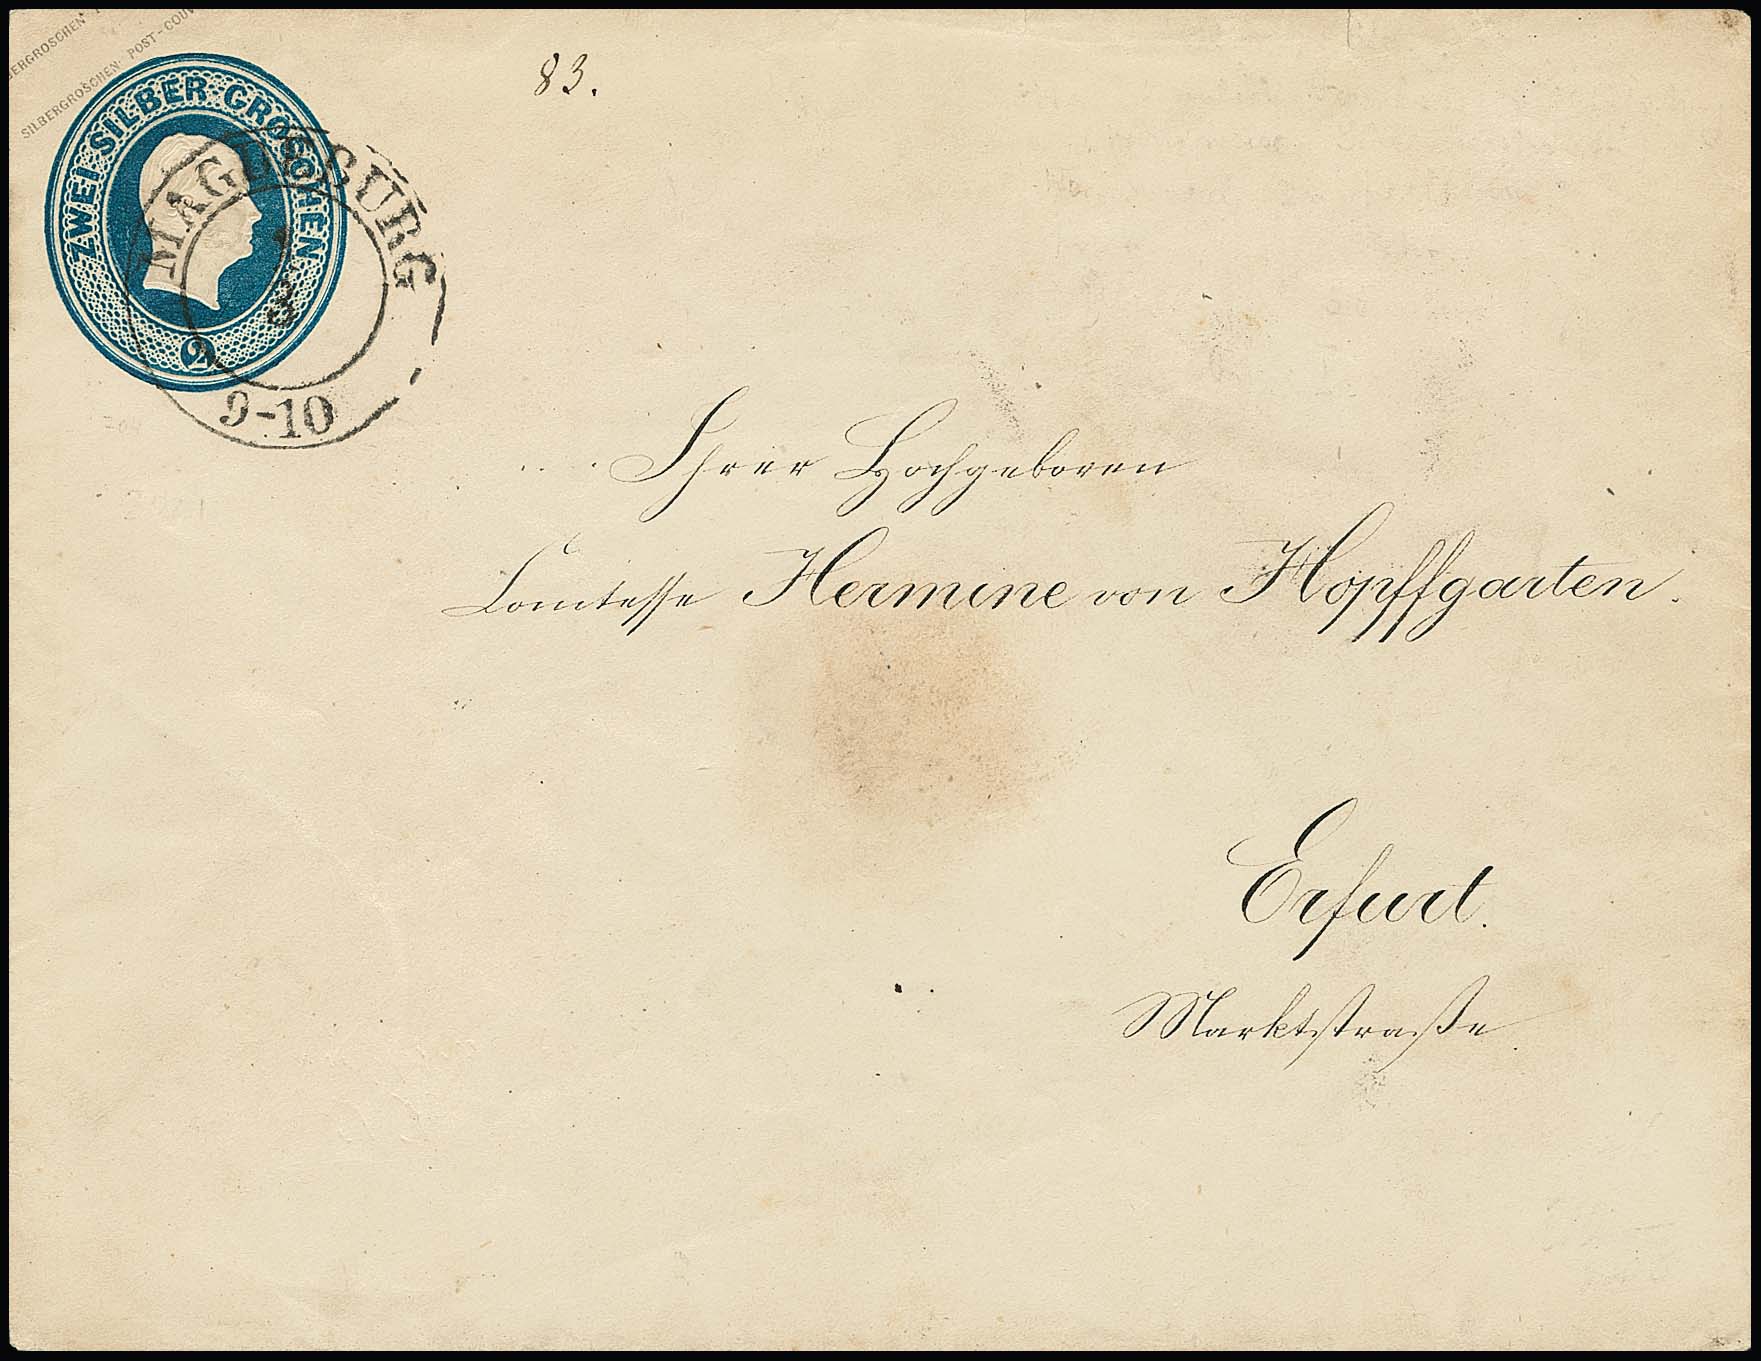 SILBERGROSCHEN POST-COUV
83.
ZWEI·SILBER·GROSCHEN
2
MAGDEBURG
3
9-10
Ihrer Hochgeboren
Comtesse Hermine von Hopffgarten.
Erfurt.
Marktstraße